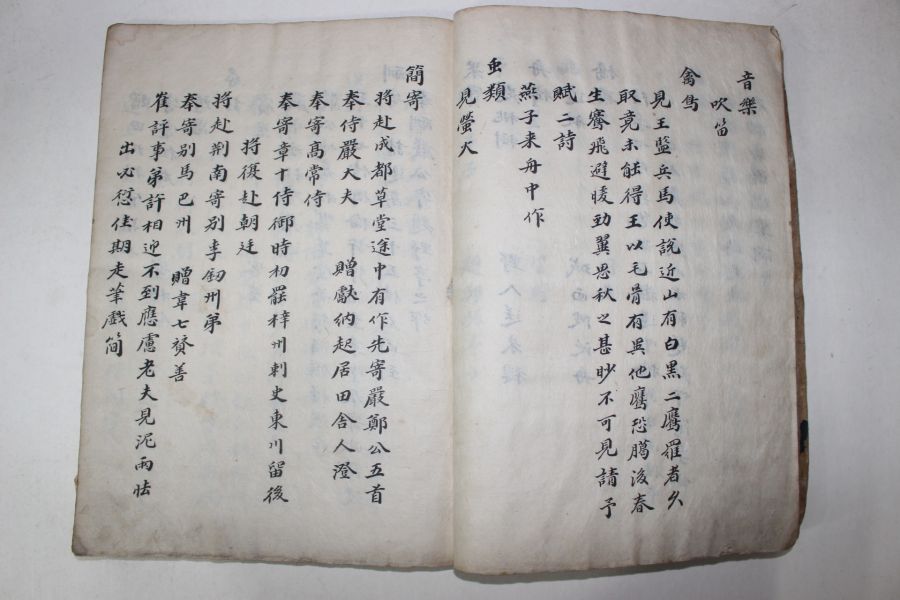 音樂
吹笛
禽鸟
見王監兵馬使說近山有白黒二鷹羅者久
取竟未能得王以毛骨有異他鷹恐臈後春
生騫飛避暖勁翼思秋之甚眇不可見請予
賦二詩
燕子来舟中作
虫類
見螢火
簡寄
将赴成都草堂途中有作先寄嚴鄭公五首
奉侍嚴大夫 贈獻納起居田舍人澄
奉寄高常侍
奉寄章十侍御時初罷梓州刺史東川留後
将復赴朝廷
将赴荆南寄别李劒州弟
奉寄别馬巴州 贈韋七賛善
崔評事弟許相迎不到應慮老夫見泥雨怯
出必愆佳期走筆戲簡